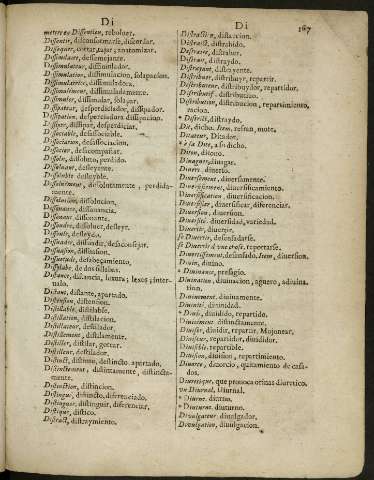 Di
Di
167
meter en Dissention, reboluer.
Dissentir, disconformarse, discordar.
Dissequer, cortar, tajar, anatomizar.
Dissimilaire, dessemejante.
Dissimulateur, dissimulador.
Dissimulation, dissimulacion, solapacion.
Dissimulatrice, dissimuladora.
Dissimulément, dissimuladamente.
Dissimuler, dissimular, solapar.
Dissipateur, desperdiciador, dissipador.
Dissipation, desperciadura dissipacion.
Dissiper, dissipar, desperdiciar.
Dissociable, desassociable.
Dissociation, desassociacion.
Dissocier, desacompañar.
Dissolu, dissoluto, perdido.
Dissoluant, desleyente.
Dissoluble, desleyble.
Dissoluëment, dissolutamente, perdidamente.
Dissolution, dissolucion.
Dissonance, dissonancia.
Dissonant, dissonante.
Dissoudre, dissoluer, desleyr.
Dissouls, desleydo.
Dissuader, dissuadir, desaconsejar.
Dissuasion, dissuasion.
Dissyllabe, de dos sillabas.
Distance, distancia, luxura; lexos; interualo.
Distant, distante, apartado.
Distension, distension.
Distillable, distilable.
Distillation, distilacion.
Distillateur, destilador.
Distiller, distilar, gotear.
Distilleur, destilador.
Distinct, distinto, destincto, apartado.
Distinctement, distintamente, distinctamente.
Distinction, distincion.
Distingué, distincto, diferenciado.
Distinguer, distinguir, diferenciar.
Distique, distico.
Distract, distraymiento.
Distraction, distraccion.
Distraict, distrahido.
Distraire, distrahir.
Distrait, distraydo.
Distrayant, distroyente.
Distribuer, distribuyr, repartir.
Distributeur, distribuydor, repartidor.
Distributif, distributiuo.
Distribution, distribucion, repartimiento, racion.
* Distrit, distraydo.
Dit, dicho. Item, refran, mote.
Dictateur, Dictador.
* à sa Dite, a su dicho.
Diton, dicono.
Diuaguer, diuagar.
Diuers, diuerso.
Diuersement, diuersamente.
Diuersifiement, diuersificamiento.
Diuersification, diuersificacion.
Diuersifier, diuersificar, diferenciar.
Diuersion, diuersion.
Diuersité, diuersidad, variedad.
Diuertir, diuertir.
se Diuertir, desenfadarse.
se Diuertir d'vne chose, repertarse.
Diuertissement, desenfado, Item, diuersion.
Diuin, diuino.
* Diuinance, presagio.
Diuination, diuinacion, aguero, adiuinacion.
Diuinement, diuinamente.
Diuinité, diuinidad.
* Diuis, diuidido, repartido.
Diuisément, distinctamente.
Diuiser, diuidir, repartir, Mojonear.
Diuiseur, repartidor, diuididor.
Diuisible, repartible.
Diuision, diuision, repartimiento.
Diuorce, diuorcio, quitamiento de casados.
Diuretique, que prouoca orinas diuretico.
vn Diurnal, Diurnal.
* Diurne, diurno.
* Diuturne, diuturno.
Diuulgateur, diuulgador.
Diuulgation, diuulgacion.